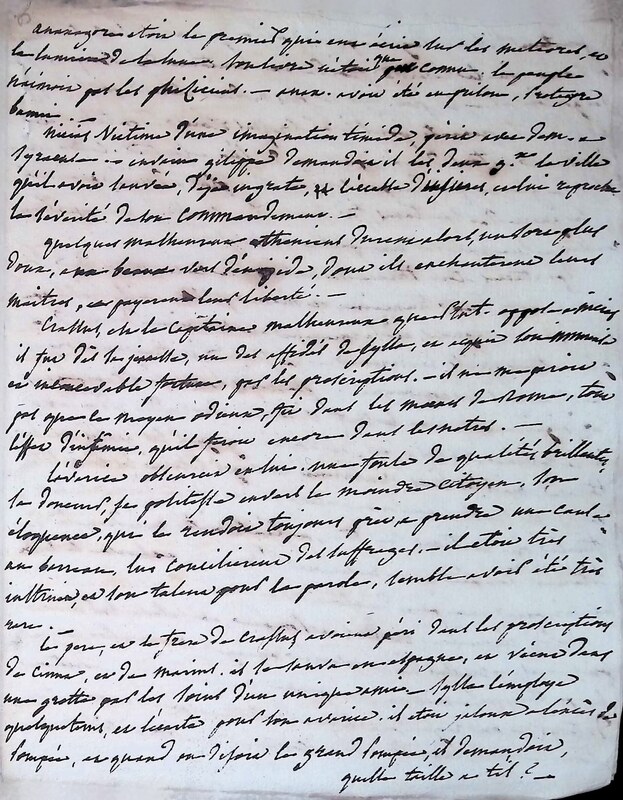 anaxagore etoit le premier qui eut écrit sur les meteores, et
la lumiere de la lune. son livre etoit peu connu. le peuple
n'aimoit pas les phisiciens. — anax. avoit été en prison, protagore
banni. —
nicias victime d'une imagination timide, périt avec dem. a
syracuse. — envain gilippe demandoit il les deux g.aux la ville
qu'il avoit sauvée, déja ingrate, et lui reproche
la sévérité de son commandement. —
quelques malheureux atheniens durent alors, un sort plus
doux, aux beaux vers d'euripide, dont ils enchanterent leurs
maitres, et payerent leur liberté. —
Crassus, est le capitaine malheureux que Plut. oppose a nicias
il fut dès sa jeunesse, un des affidés de sylla, et acquit son immense
et incroyable fortune, par les proscriptions. — il ne manquoit
pas que ce moyen odieux, fut dans les moeurs de Rome, tout
l'effet d'infamie, qu'il feroit encore dans les notres. —
L'avarice obscurcit en lui. une foule de qualités brillantes,
sa douceur, sa politesse envers le moindre citoyen, son
éloquence, qui le rendoit toujours prêt, a prendre une cause
au barreau, lui concilierent des suffrages. — il etoit très
instruit, et son talent pour la parole, semble avoir été très
rare. —
Le pere, et le frere de crassus avoient péri dans les proscriptions
de cinna, et de marius. il se sauva en espagne, et vécut dans
une grotte par les soins d'un unique ami — sylla l'employa
quelquetems, et l'écarta pour son avarice. il etoit jaloux a l'excès de
Pompée, et quand on disoit le grand Pompée, il demandoit,
quelle taille a t'il ? —